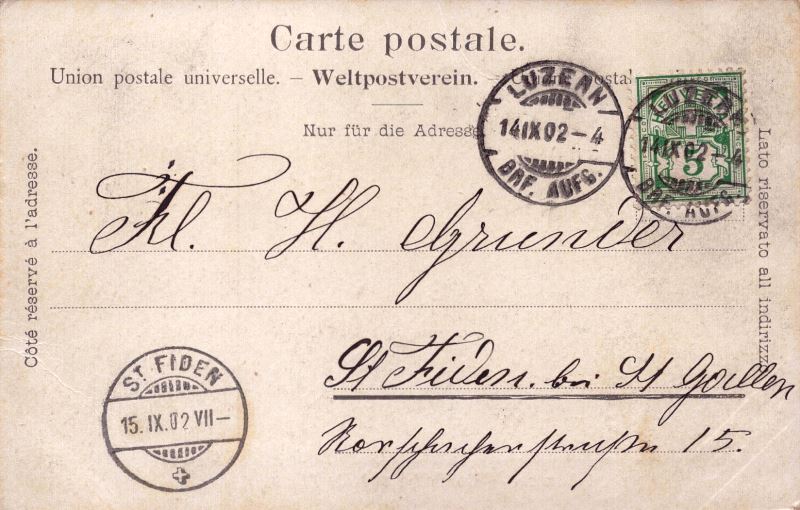 Carte postale.
Union postale universelle. – Weltpostverein. – Unione posta
Nur für die Adresse
Côté réservé à l'adresse.
Lato riservato all indirizz
LUZERN
14 IX 02 – 4
BRF. AUFG.
HELVETIA
5
LUZERN
14 IX 02 – 4
BRF. AUFG.
Frl. H. Grunder
St Fiden. bei St Gallen
Rorschacherstrasse 15.
ST. FIDEN
15. IX. 02 VII –